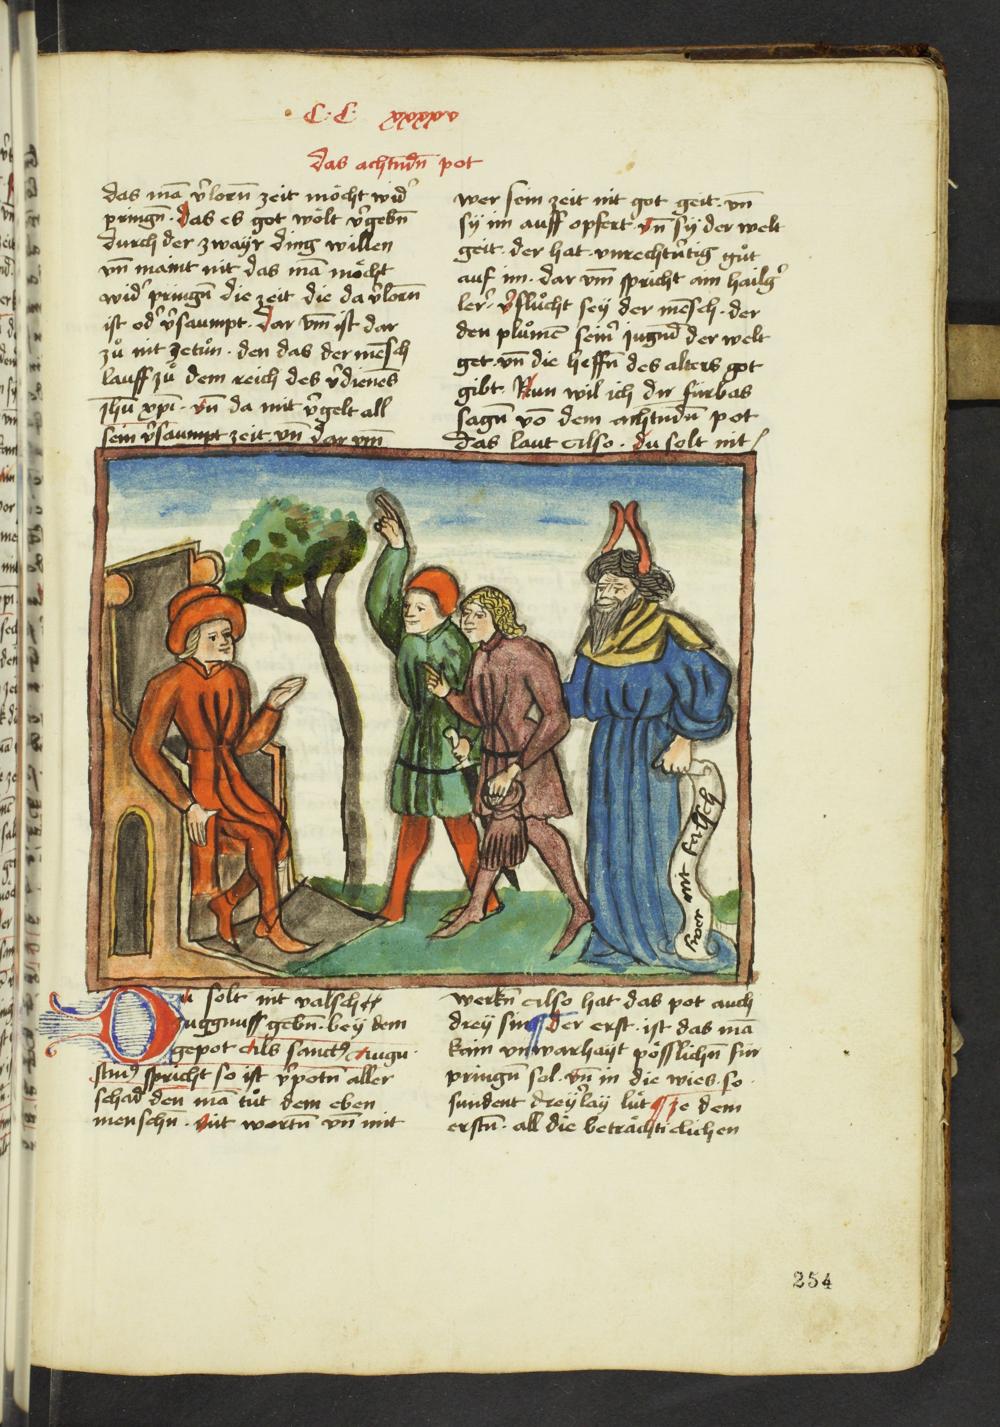 C. C. xxxxv
das achtudn̄ pot
das mā v̓lorn̄ zeit möcht wid̓
pringn̄. das es got wölt v̓gebn̄
durch der zwayr ding willen
vn̄ maint nit das mā möcht
wid̓ pringn̄ die zeit die da v̓lorn̄
ist od̓ v̓saumpt. Dar vm̄ ist dar
zů nit zetůn. den das der mēsch
lauff zů dem reich des v̓dienēs
Jhū xp̄i. vn̄ da mit v̓gelt all
sein v̓saumpt zeit vn̄ dar vm̄
wer sein zeit nit got geit. vn̄
sy im auff opfert. vn̄ sy der welt
geit. der hat vnrechtv̓tig gůt
auf im. dar vm̄ spricht ain hailg̓
ler̓. v̓flůcht sey der mēsch. der
den plůmē sein̓ jugnd̄ der welt
get. vn̄ die heffn̄ des alters got
gibt. Nun wil ich dir fürbas
sagn̄ vō dem achtudn̄ pot
das laut Also. du solt nit
hwer nit falsch
Du solt nit valsch
zuggnuss gebn̄. bey dem
gepot Als sanct9 Augu
stin9 spricht so ist v̓potn̄ aller
schad den mā tůt dem eben
menschn̄. mit wortn̄ vn̄ mit
werkn̄ Also hat das pot auch
drey sin¶ Der erst. ist das mā
kain vnwarhayt pösslichn̄ für
pringn̄ sol. vn̄ in die wies. so
sundent dreylay lüt ¶ Ze dem
erstn̄. all die beträchticlichen
254